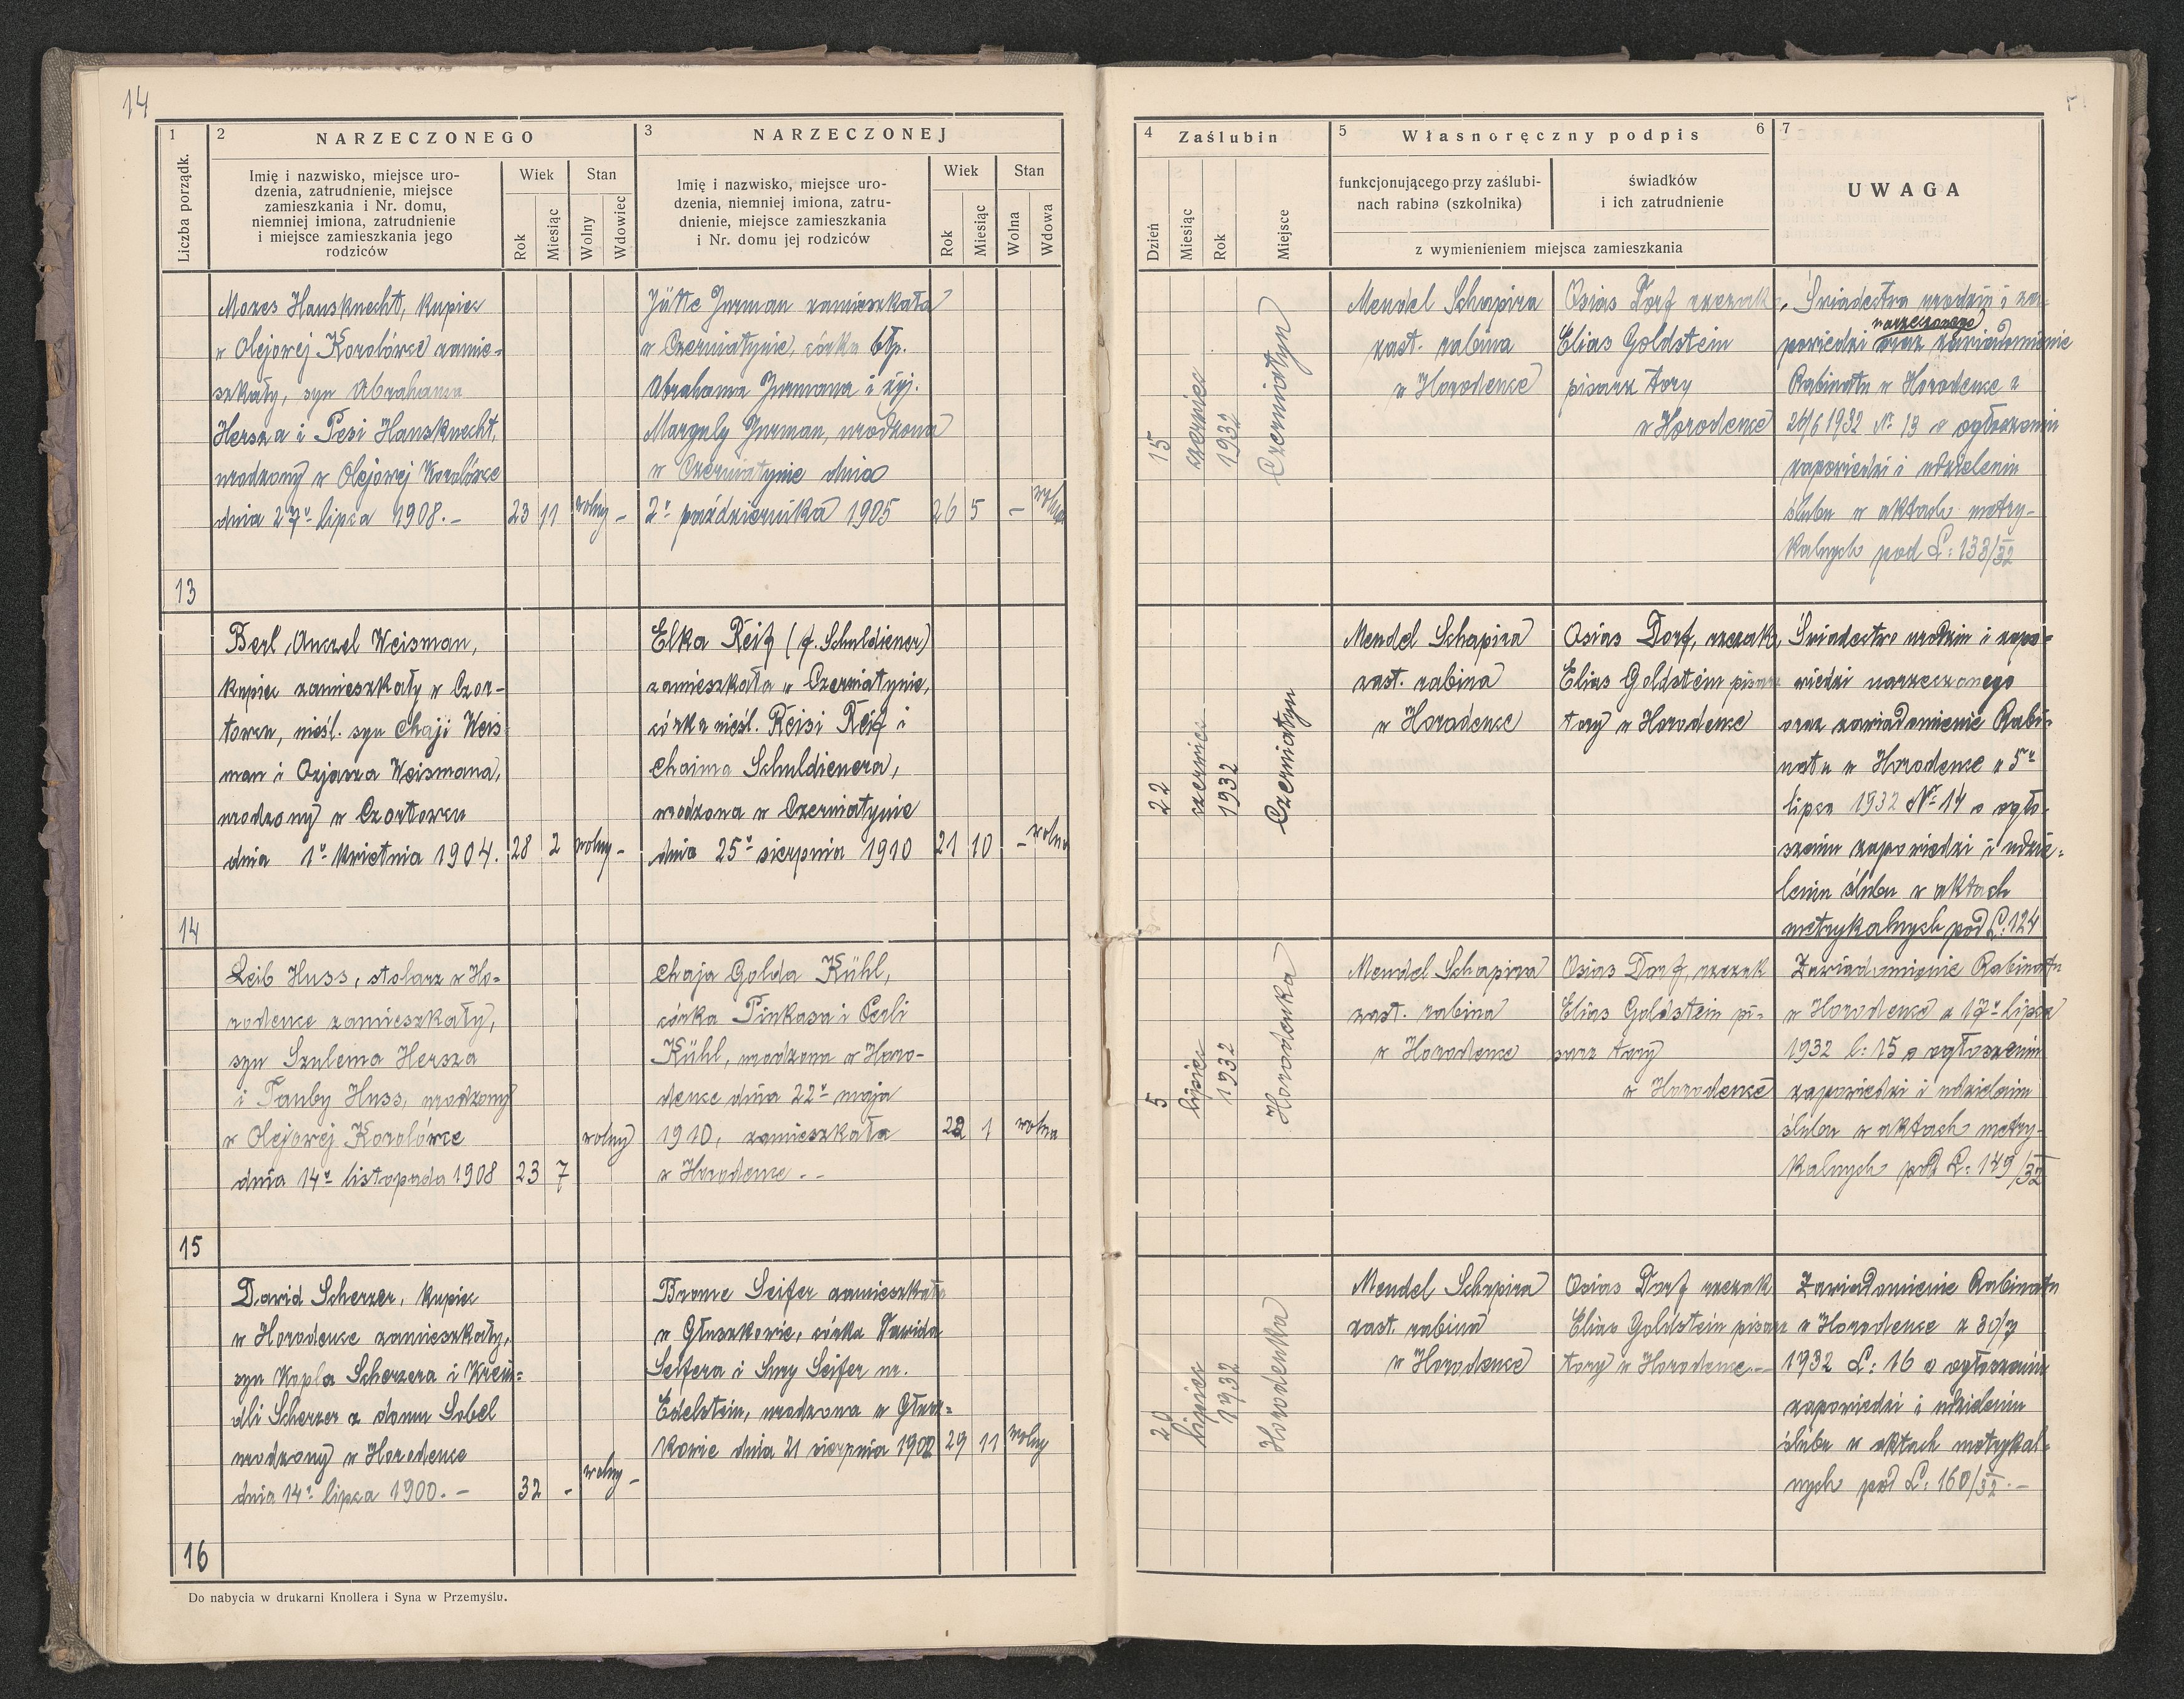 14
1
2
NARZECZONEGO
3
NARZECZONEJ
Liczba porządk.
Imię i nazwisko, miejsce uro-
dzenia, zatrudnienie, miejsce
zamieszkania i Nr. domu,
niemniej imiona, zatrudnienie
i miejsce zamieszkania jego
rodziców
Wiek
Stan
Rok
Miesiąc
Wolny
Wdowiec
Imię i nazwisko, miejsce uro-
dzenia, niemniej imiona, zatru-
dnienie, miejsce zamieszkania
i Nr. domu jej rodziców
Wiek
Stan
Rok
Miesiąc
Wolna
Wdowa
4
Zaślubin
5
Własnoręczny podpis
6
7
Dzień
Miesiąc
Rok
Miejsce
funkcjonującego przy zaślubi-
nach rabina (szkolnika)
świadków
i ich zatrudnienie
z wymienieniem miejsca zamieszkania
UWAGA
13
Mozes Hausknecht, kupiec
w Olejowej Korolówce zamie-
szkały, syn Abrahama
Hersza i Pesi Hausknecht,
urodzony w Olejowej Korolówce
dnia 27go lipca 1908.-
23
11
wolny -
Jütte Jurman zamieszkała
w Czerniatynie, córka błp.
Abrahama Jurmana i żyj.
Marguly Jurman, urodzona
w Czerniatynie dnia
2go października 1905
26
5
-
wolna
15
czerwiec
1932
Czerniatyn
Mendel Schapira
zast. rabina
w Horodence
Osias Dorf rzezak,
Elias Goldstein
pisarz tory
w Horodence
Świadectwa urodzin i za-
narzeczonego
powiedzi oraz zawiadomienie
Rabinatu w Horodence z
26/6 1932 No 13 o ogłoszeniu
zapowiedzi i udzieleniu
ślubu w aktach metry-
kalnych pod L: 133/32
14
Berl Anczel Weisman,
kupiec zamieszkały w Czor-
towcu, nieśl. syn Chaji Weis-
man i Ozjasza Weismana,
urodzony w Czortowcu
dnia 1go kwietnia 1904.
28
2
wolny -
Elka Reif (f. Schuldiener)
zamieszkała w Czerniatynie,
córka nieśl. Reisi Reif i
Chaima Schuldienera,
urodzona w Czerniatynie
dnia 25go sierpnia 1910
21
10
-
wolna
22
czerwiec
1932
Czerniatyn
Mendel Schapira
zast. rabina
w Horodence
Osias Dorf, rzezak,
Elias Goldstein pisarz
tory w Horodence
Świadectwo urodzin i zapo-
wiedzi narzeczonego
oraz zawiadomienie Rabi-
natu w Horodence z 5go
lipca 1932 No 14 o ogło-
szeniu zapowiedzi i udzie-
leniu ślubu w aktach
metrykalnych pod L: 124
15
Leib Huss, stolarz w Ho-
rodence zamieszkały,
syn Szulema Hersza
i Tauby Huss, urodzony
w Olejowej Korolówce
dnia 14go listopada 1908
23
7
wolny
Chaja Golda Kühl,
córka Pinkasa i Perli
Kühl, urodzona w Horo-
dence dnia 22go maja
1910, zamieszkała
w Horodence --
22
1
wolna
5
lipiec
1932
Horodenka
Mendel Schapira
zast. rabina
w Horodence
Osias Dorf, rzezak
Elias Goldstein pi-
sarz tory
w Horodence
Zawiadomienie Rabinatu
w Horodence z 17go lipca
1932 l: 15 o ogłoszeniu
zapowiedzi i udzieleniu
ślubu w aktach metry-
kalnych pod L: 149/32
16
Dawid Scherzer, kupiec
w Horodence zamieszkały,
syn Kopla Scherzera i Krein-
dli Scherzer z domu Sobel
urodzony w Horodence
dnia 14go lipca 1900.-
32
-
wolny -
Bronie Seifer zamieszkała
w Głuszkowie, córka Dawida
Seifera i Sury Seifer ur.
Edelstein, urodzona w Głusz-
kowie dnia 21 sierpnia 1902
29
11
wolny
20
lipiec
1932
Horodenka
Mendel Schapira
zast. rabina
w Horodence
Osias Dorf rzezak
Elias Goldstein pisarz
tory w Horodence.--
Zawiadomienie Rabinatu
w Horodence z 30/7
1932 L: 16 o ogłoszeniu
zapowiedzi i udzieleniu
ślubu w aktach metrykal-
nych pod L: 160/32.-
Do nabycia w drukarni Knollera i Syna w Przemyślu.